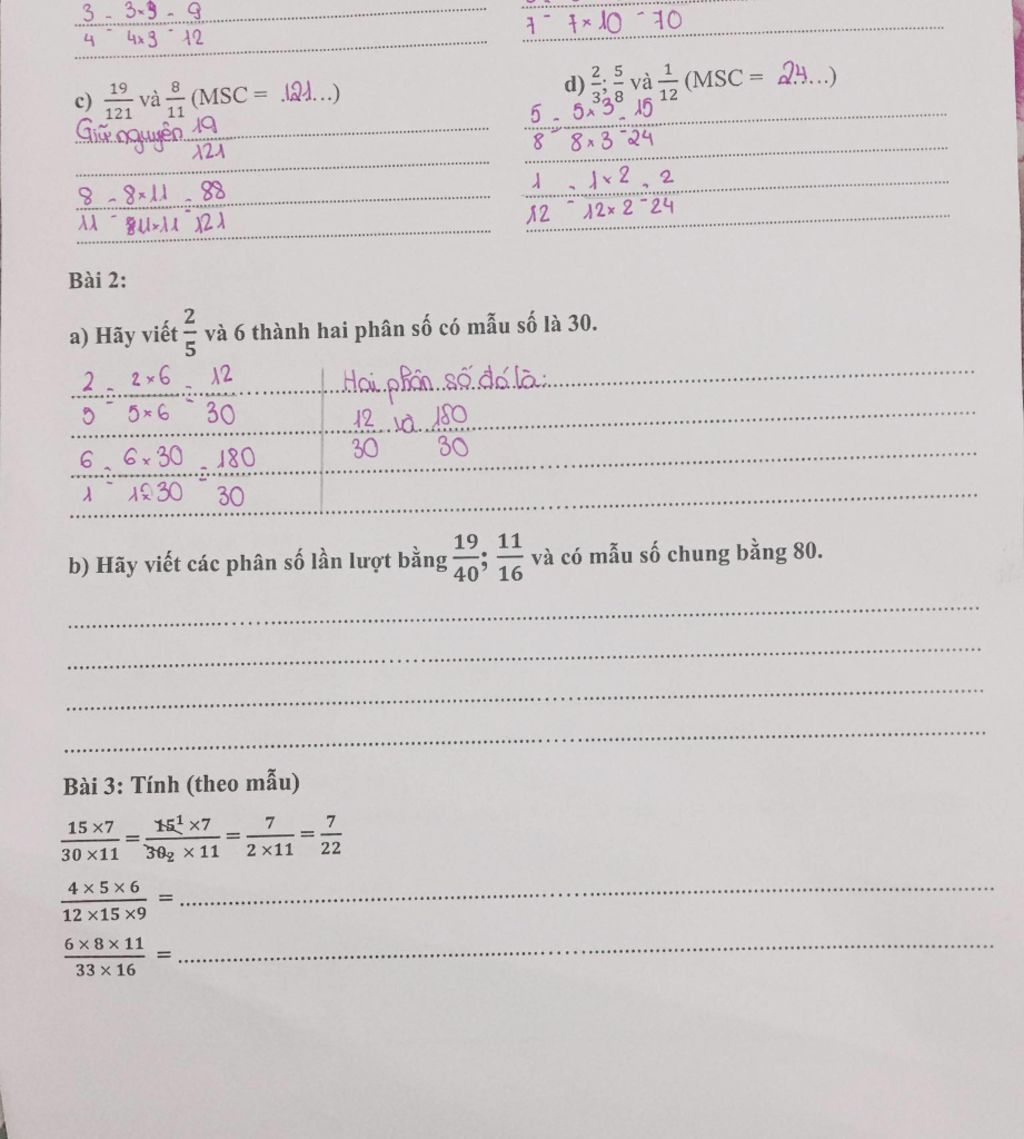 3/4 = 3×3/4×3 = 9/12
7 = 7×10 = 70
c) 19/121 và 8/11 (MSC = .121...)
Giữ nguyên 19/121
8/11 = 8×11/11×11 = 88/121
d) 2/3; 5/8 và 1/12 (MSC = 24...)
5/8 = 5×3/8×3 = 15/24
1/12 = 1×2/12×2 = 2/24
Bài 2:
a) Hãy viết 2/5 và 6 thành hai phân số có mẫu số là 30.
2/5 = 2×6/5×6 = 12/30
6/1 = 6×30/1×30 = 180/30
Hai phân số đó là:
12/30 và 180/30
b) Hãy viết các phân số lần lượt bằng 19/40; 11/16 và có mẫu số chung bằng 80.
Bài 3: Tính (theo mẫu)
15 ×7/30 ×11 = 15¹ ×7/30₂ × 11 = 7/2 ×11 = 7/22
4 × 5 × 6/12 ×15 ×9 =
6 × 8 × 11/33 × 16 =